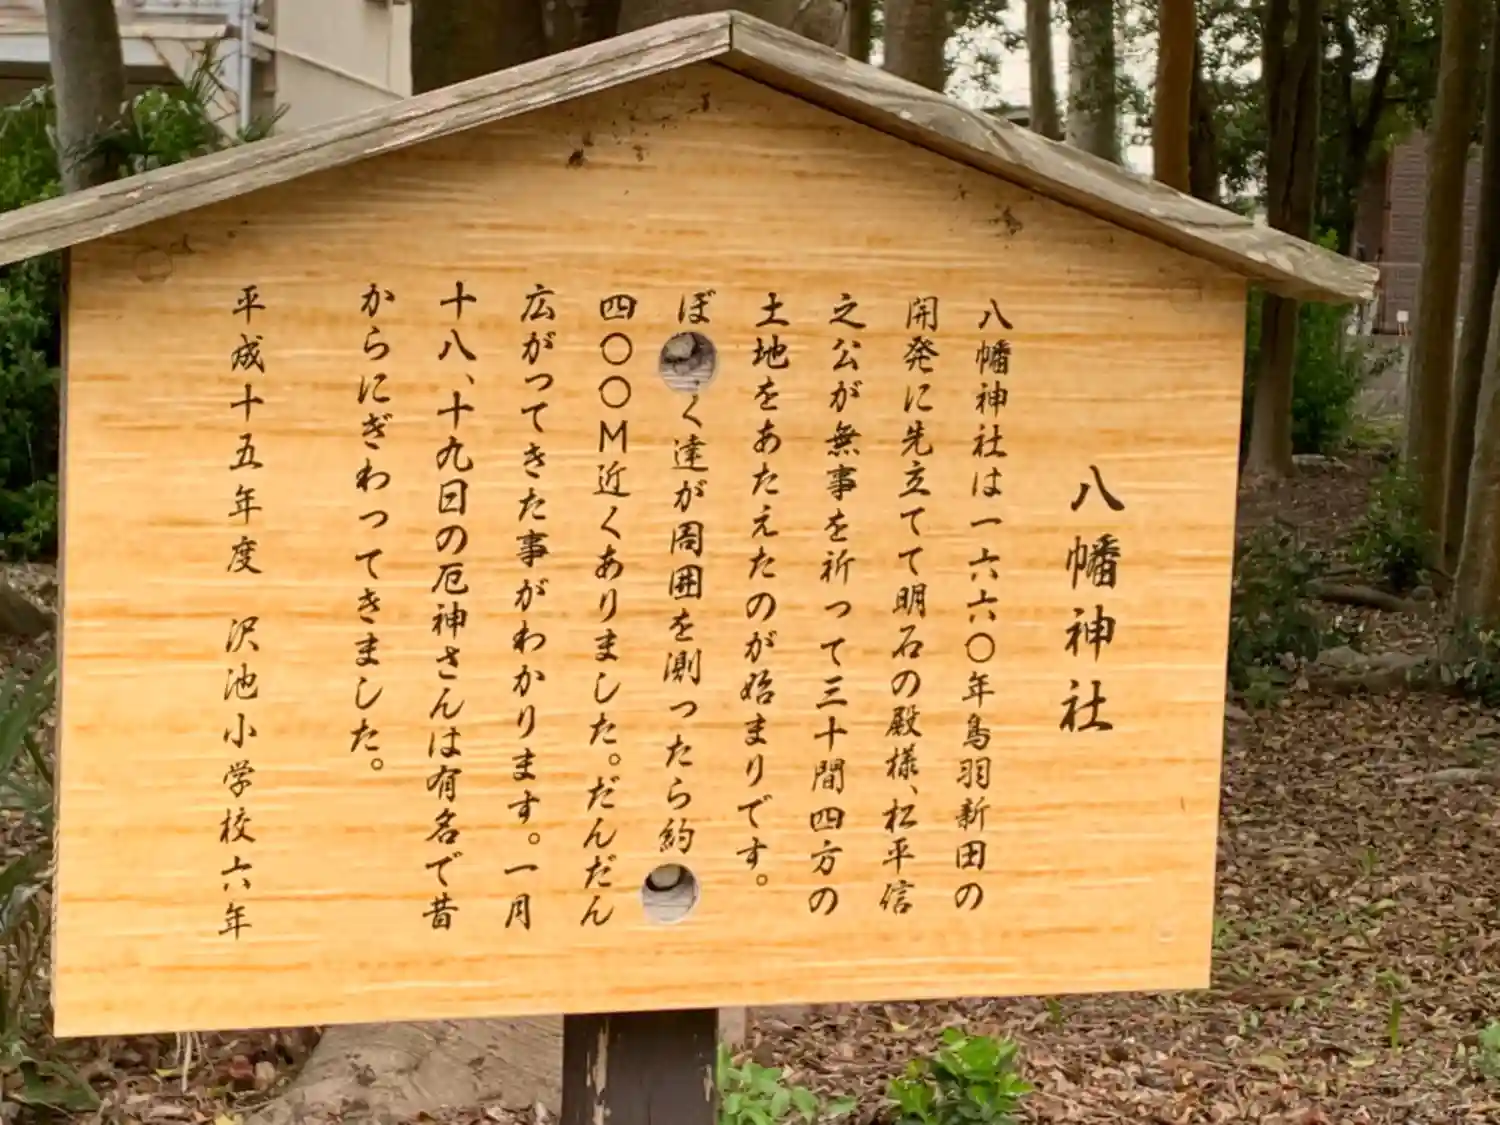 八幡神社
八幡神社は一六六〇年鳥羽新田の
開発に先立てて明石の殿様、松平信
之公が無事を祈って三十間四方の
土地をあたえたのが始まりです。
ぼく達が周囲を測ったら約
四〇〇M近くありました。だんだん
広がってきた事がわかります。一月
十八、十九日の厄神さんは有名で昔
からにぎわってきました。
平成十五年度 沢池小学校六年